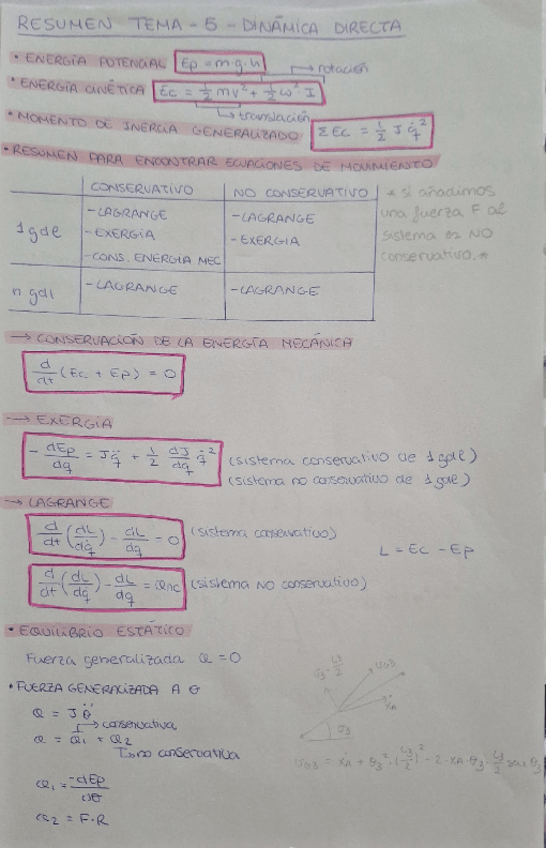 RESUMEN TEMA - 5 - DINÁMICA DIRECTA
• ENERGÍA POTENCIAL Ep = m·g·h
→ rotación
• ENERGÍA CINÉTICA Ec = 1/2 mv² + 1/2 ω²·I
→ translación
• MOMENTO DE INERCIA GENERALIZADO ΣEc = 1/2 J q̇²
• RESUMEN PARA ENCONTRAR ECUACIONES DE MOVIMIENTO
CONSERVATIVO NO CONSERVATIVO
1 gdl
- LAGRANGE - LAGRANGE
- EXERGÍA - EXERGÍA
- CONS. ENERGÍA MEC
n gdl - LAGRANGE - LAGRANGE
* si añadimos
una fuerza F al
sistema es NO
conservativo. *
→ CONSERVACIÓN DE LA ENERGÍA MECÁNICA
d/dt (Ec + Ep) = 0
→ EXERGÍA
- dEp/dq = Jq̈ + 1/2 dJ/dq q̇² (sistema conservativo de 1 gdl)
(sistema no conservativo de 1 gdl)
→ LAGRANGE
d/dt (dL/dq̇) - dL/dq = 0 (sistema conservativo)
L = Ec - Ep
d/dt (dL/dq̇) - dL/dq = Qnc (sistema NO conservativo)
• EQUILIBRIO ESTÁTICO
Fuerza generalizada Q = 0
• FUERZA GENERALIZADA A θ
Q = J θ̈
→ conservativa
Q = Q1 + Q2
→ no conservativa
Q1 = -dEp/dθ
Q2 = F·R